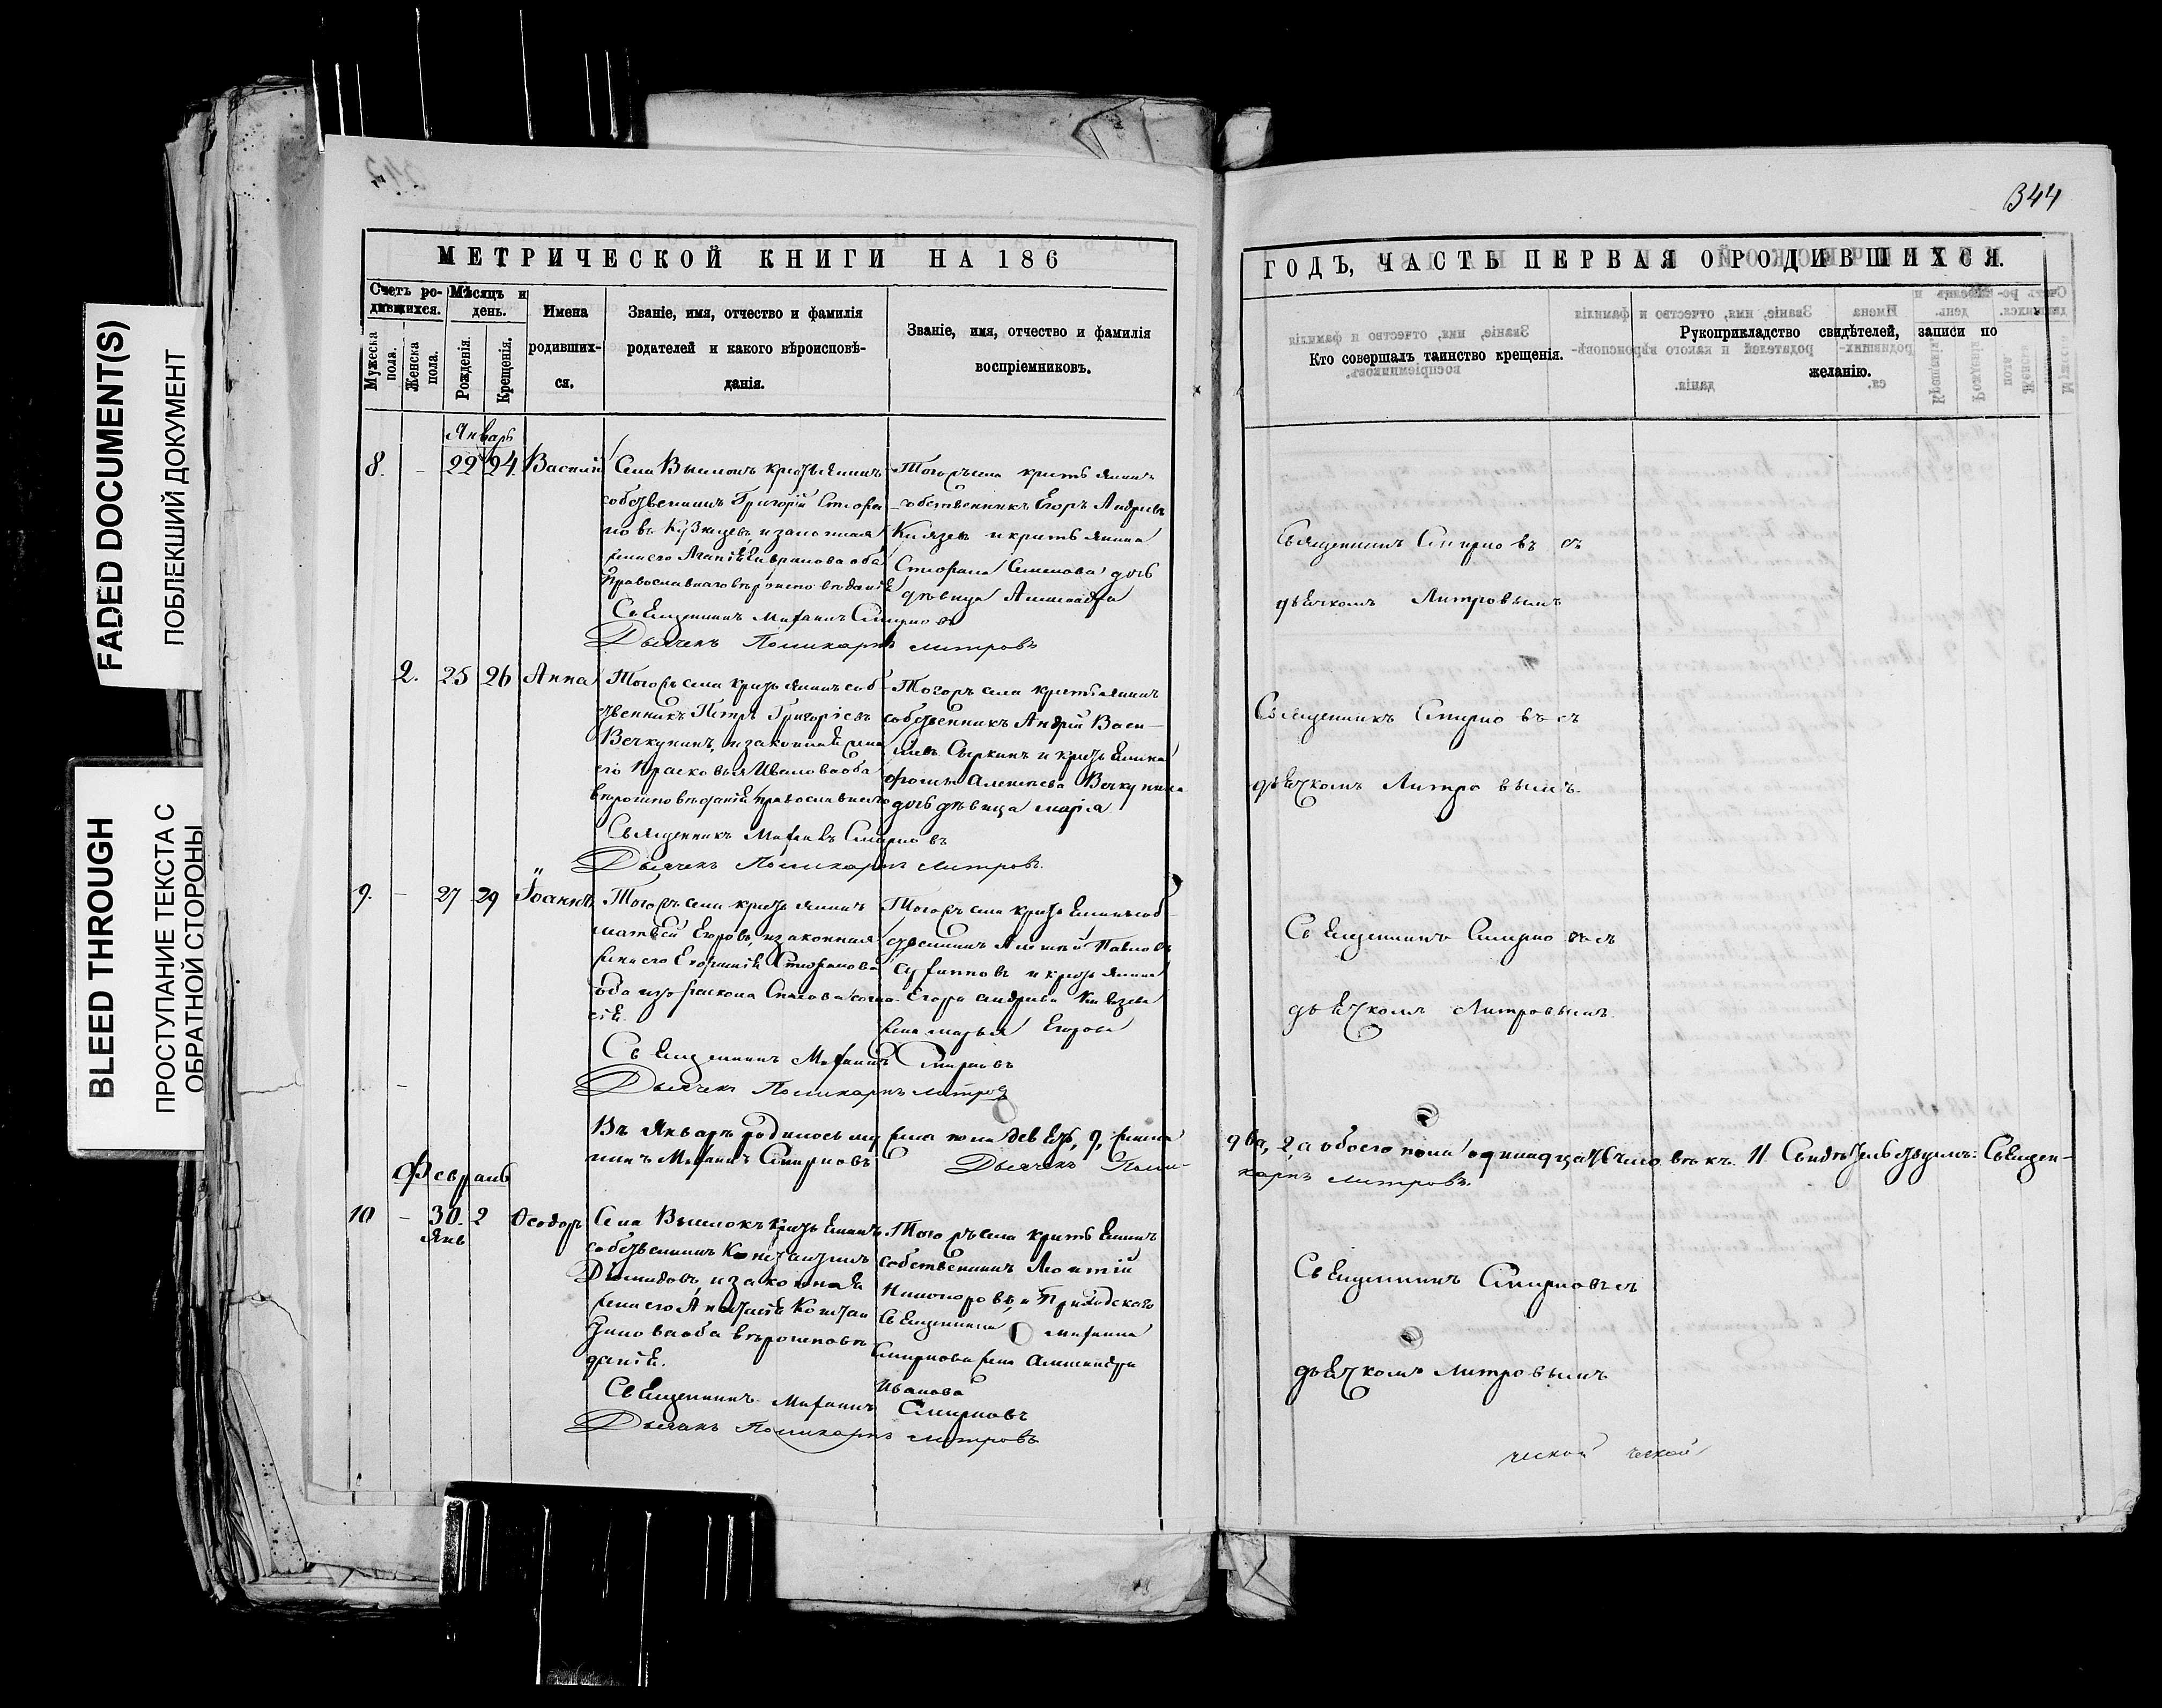 344
МЕТРИЧЕСКОЙ КНИГИ НА 186
ГОДЪ, ЧАСТЬ ПЕРВАЯ О РОДИВШИХСЯ.
Счетъ ро-
дившихся.
Мѣсяцъ и
день.
Мужеска
пола.
Женска
пола.
Рожденія.
Крещенія.
Имена
родивших-
ся.
Званіе, имя, отчество и фамилія
родителей и какого вѣроисповѣ-
данія.
Званіе, имя, отчество и фамилія
воспріемниковъ.
Кто совершалъ таинство крещенія.
Рукоприкладство свидѣтелей, записи по
желанію.
Январь
8. - 22 24 Василій
Села Выселокъ крестьянинъ
собственникъ Григорій Стефа
новъ Кузнецовъ, и законная
жена его оба
Православнаго вѣроисповѣданія
Священникъ Михаилъ Смирновъ
Дьячекъ Поликарпъ Митровъ
Того жъ села крестьянинъ
собственникъ Егоръ Андреевъ
Князевъ и крестьянина
Стефана Семенова дочь
дѣвица Александра
Священникъ Смирновъ съ
дьячкомъ Митровымъ
2. 25 26 Анна
Того жъ села крестьянинъ соб
ственникъ Петръ Григорьевъ
Вечкунинъ, и законная жена
его Прасковья Иванова оба
вѣроисповѣданія православнаго
Священникъ Михаилъ Смирновъ
Дьячекъ Поликарпъ Митровъ.
Того жъ села крестьянинъ
собственникъ Андрей Васи-
льевъ Сыркинъ и крестьянина
Фомы Алексеева Вечкунина
дочь дѣвица Марія
Священникъ Смирновъ съ
дьячкомъ Митровымъ.
9. - 27 29 Іоаннъ
Того жъ села крестьянинъ
Матвей Егоровъ, и законная
жена его Стефанова
оба изъ раскола Спасова согла-
сія.
Священникъ Михаилъ Смирновъ
Дьячекъ Поликарпъ Митровъ
Того жъ села крестьянинъ соб-
ственникъ Алексей Павловъ
и крестьянина
Егора Андреева Князева
жена Марья Егорова
Священникъ Смирновъ съ
дьячкомъ Митровымъ.
Въ Январѣ родилось муж
жеска пола девять, 9, женска
два, 2, а обоего пола одиннадцать человѣкъ. 11. Свидѣтельствуемъ: Священ-
никъ Михаилъ Смирновъ Дьячекъ Поли-
карпъ Митровъ.
Февраль
10 - 30. 2 Ѳеодоръ
Янв
Села Выселокъ крестьянинъ
собственникъ Константинъ
Демидовъ, и законная
жена его Анастасія Констан
тинова оба вѣроисповѣ
данія.
Священникъ Михаилъ Смирновъ
Дьячекъ Поликарпъ Митровъ
Того жъ села крестьянинъ
собственникъ Леонтій
Никифоровъ, и Приходскаго
Священника Михаила
Смирнова жена Александра
Иванова
Священникъ Смирновъ съ
дьячкомъ Митровымъ
ческой ческой
FADED DOCUMENT(S)
ПОБЛЕКШИЙ ДОКУМЕНТ
BLEED THROUGH
ПРОСТУПАНИЕ ТЕКСТА С
ОБРАТНОЙ СТОРОНЫ